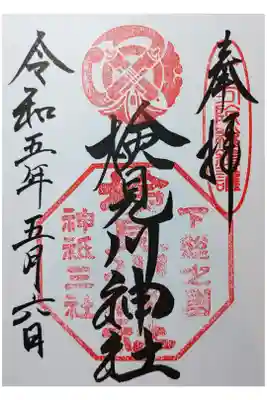 奉拝
下総之国
検見川神社
神祇三社
令和五年五月六日